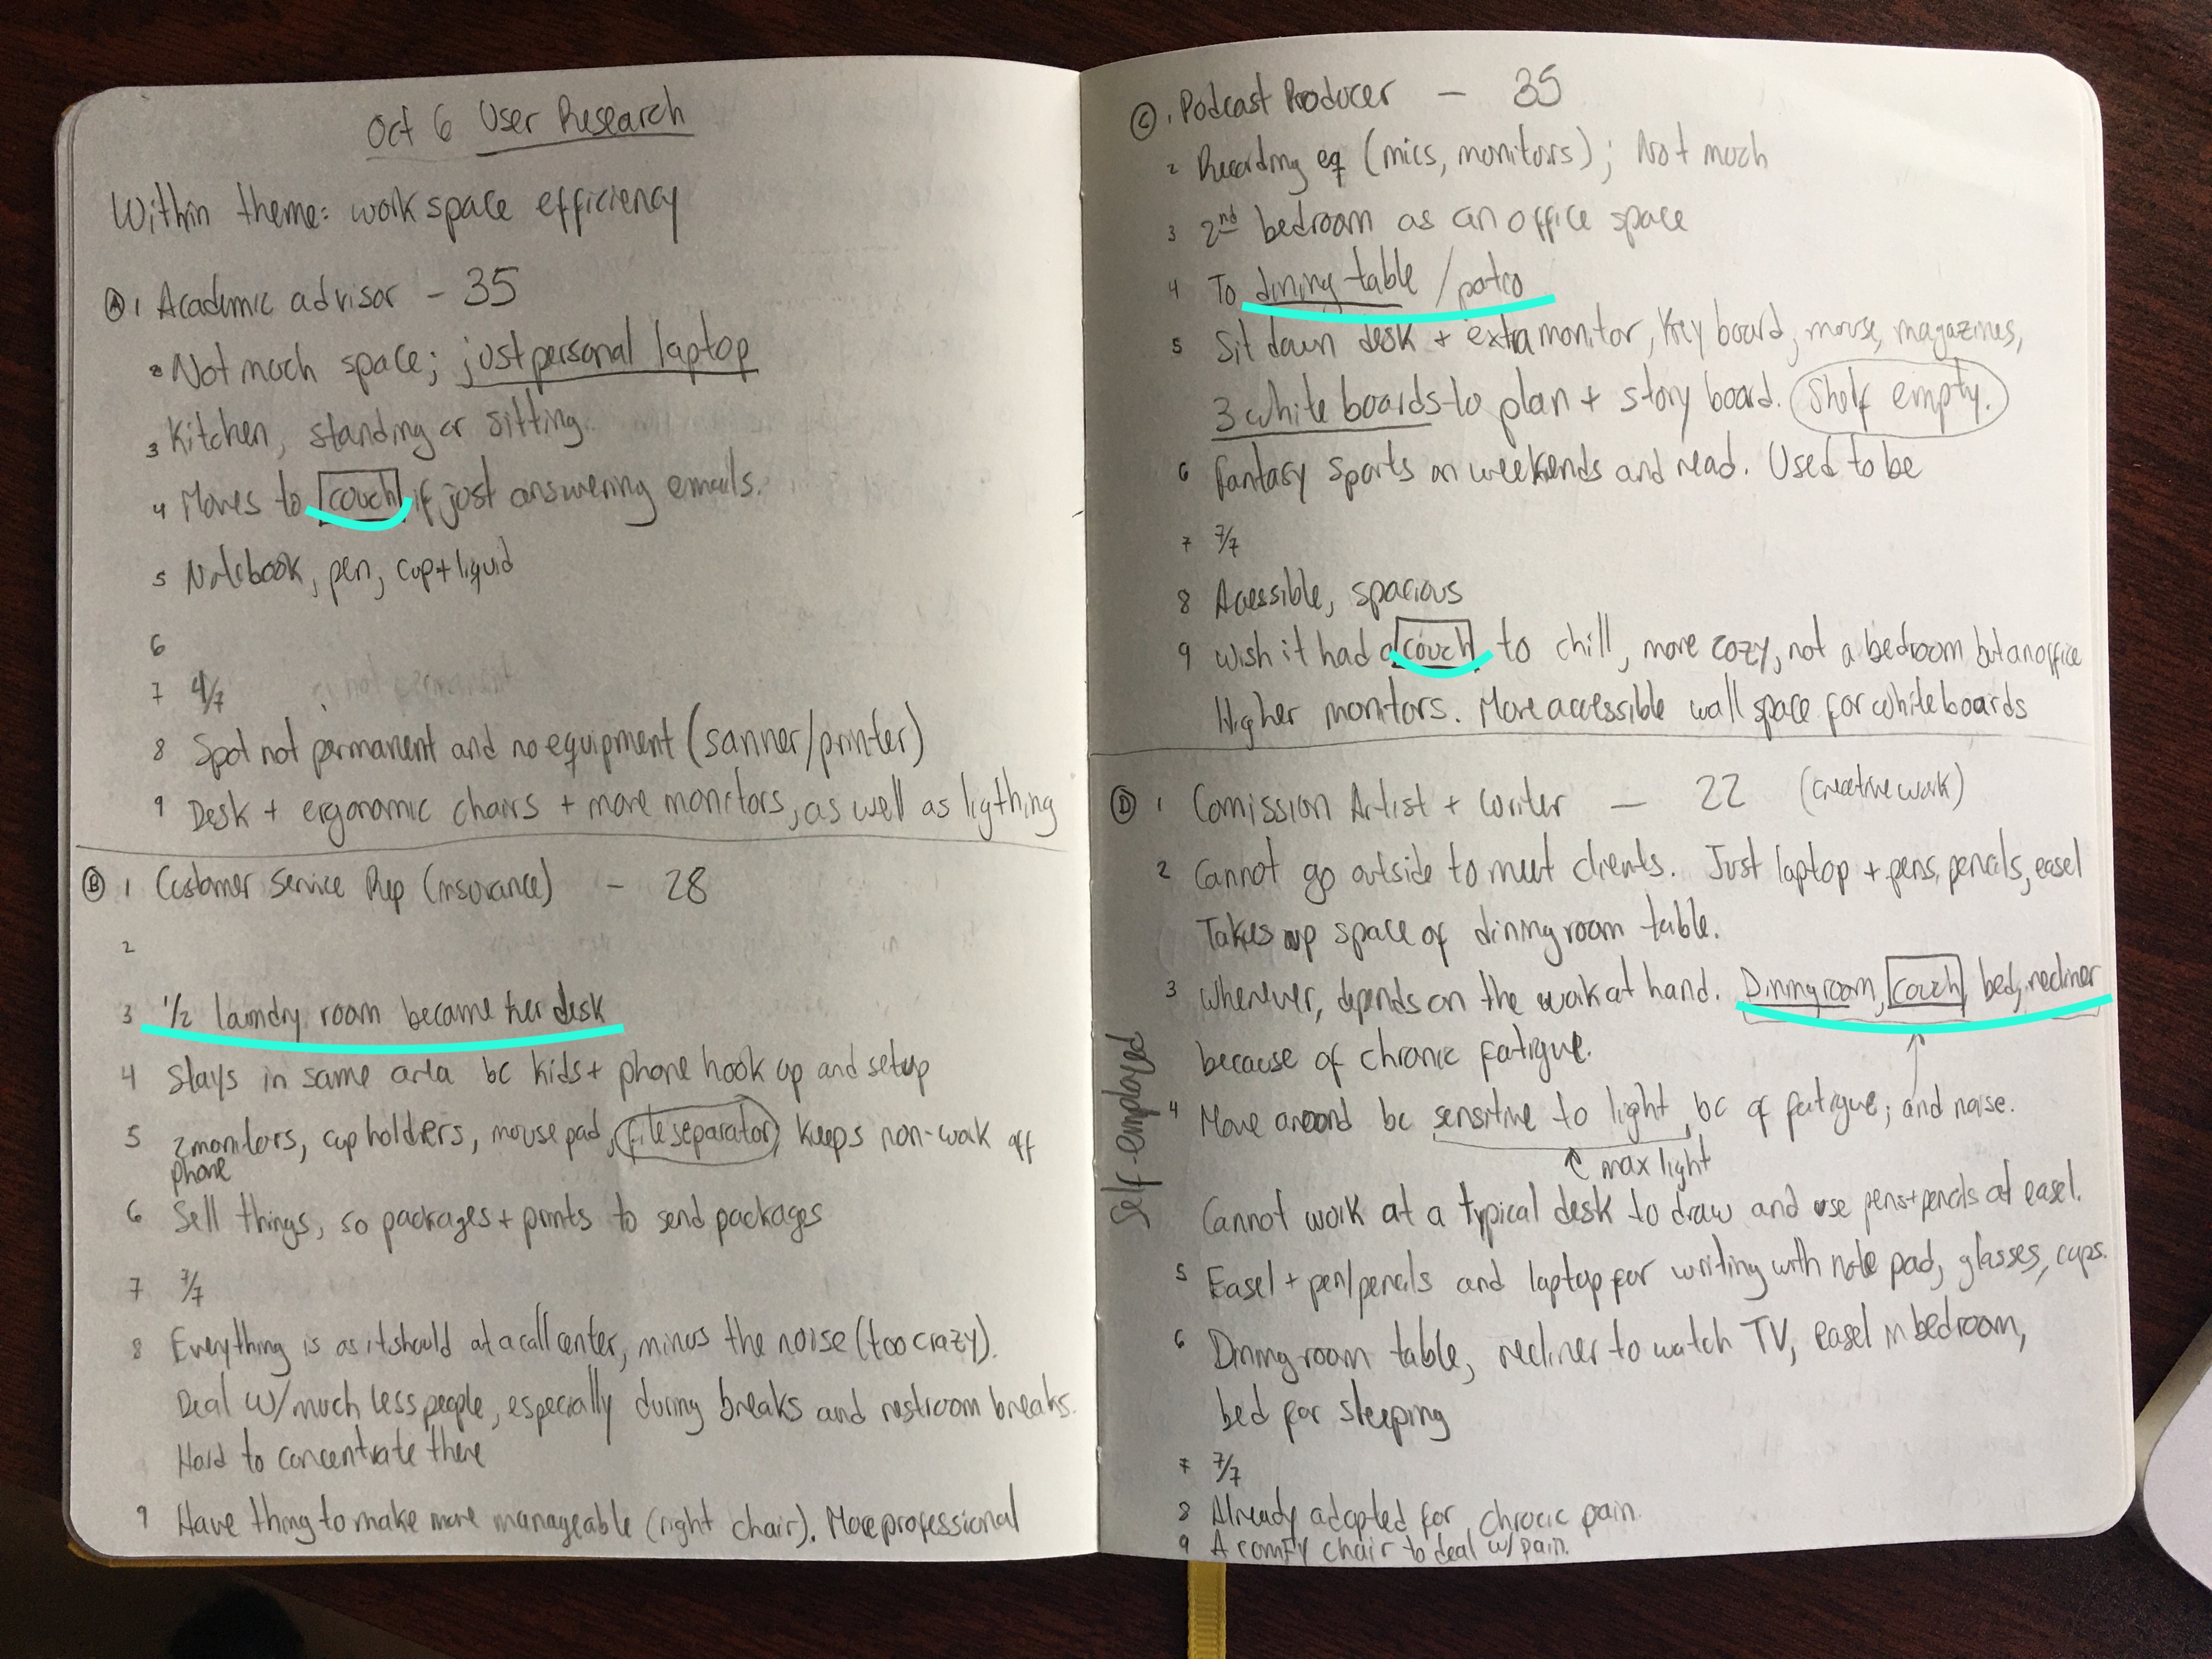 Oct 6 User Research
Within theme: work space efficiency
Ⓐ 1 Academic advisor - 35
2 Not much space; just personal laptop
3 Kitchen, standing or sitting.
4 Moves to couch if just answering emails.
5 Notebook, pen, cup + liquid
6
7 4/7
8 Spot not permanent and no equipment (sanner/printer)
9 Desk + ergonomic chairs + more monitors, as well as ligthing
Ⓑ 1 Customer Service Rep (insurance) - 28
2
3 1/2 laundry room became her desk
4 Stays in same area bc kids + phone hook up and setup
5 2 monitors, cup holders, mouse pad, file separator, keeps non-work off
phone
6 Sell things, so packages + prints to send packages
7 7/7
8 Everything is as it should at a call center, minus the noise (too crazy).
Deal w/ much less people, especially during breaks and restroom breaks.
Hard to concentrate there
9 Have thing to make more manageable (right chair). More professional
Ⓒ 1 Podcast Producer - 35
2 Recording eq (mics, monitors); Not much
3 2nd bedroom as an office space
4 To dining table / patio
5 Sit down desk + extra monitor, Key board, mouse, magazines,
3 white boards to plan + story board. Shelf empty.
6 Fantasy sports on weekends and read. Used to be
7 7/7
8 Acessible, spacious
9 Wish it had a couch to chill, more cozy, not a bedroom but an office
Higher monitors. More accessible wall space for whiteboards
Ⓓ 1 Comission Artist + Writer - 22 (creative work)
2 Cannot go outside to meet clients. Just laptop + pens, pencils, easel
Takes up space of dining room table.
3 Wherever, depends on the work at hand. Dinning room, couch, bed, recliner
because of chronic fatigue.
4 Move around bc sensitive to light, bc of fatigue; and noise.
max light
Self-employed
Cannot work at a typical desk to draw and use pens + pencils at easel.
5 Easel + pen/pencils and laptop for writing with note pad, glasses, cups.
6 Dining room table, recliner to watch TV, easel in bedroom,
bed for sleeping
7 7/7
8 Already adapted for chronic pain.
9 A comfy chair to deal w/ pain.